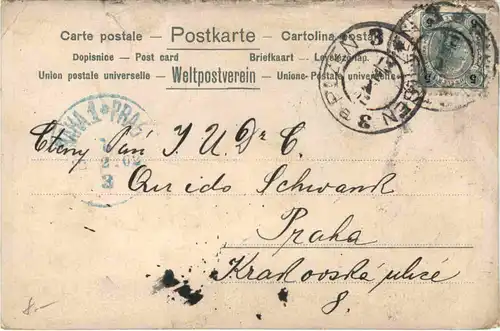 Carte postale — Postkarte — Cartolina postale
Dopisnice — Post card Briefkaart — Levelező-lap.
Union postale universelle — Weltpostverein — Unione Postale universale
3 PILSEN 3
PRAHA 1 PRAG
3
5 5
Ctěný Pán J U Dr C.
Quido Schwank
Praha
Krakovská ulice
8.
8.—